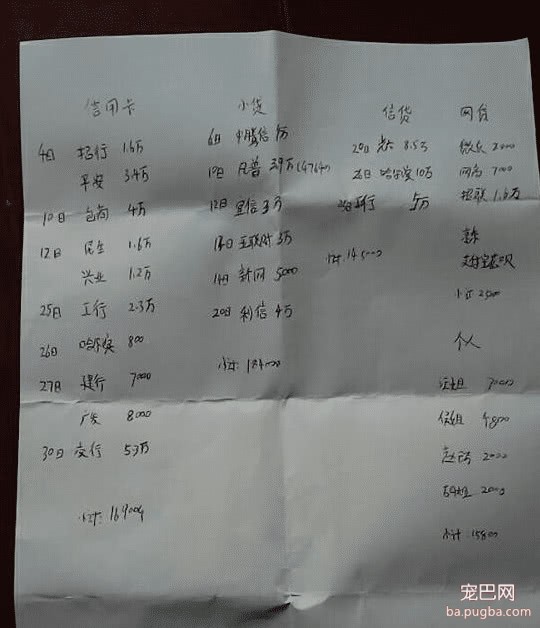 信用卡
4日 招行 1.6万
平安 3.4万
10日 包商 4万
12日 民生 1.6万
兴业 1.2万
25日 工行 2.3万
26日 哈尔滨 800
27日 建行 7000
广发 8000
30日 交行 5.3万
小计: 169004
小贷
6日 中腾信
19日 凡普 3.9万(4764)
12日 宜信 3万
互联时 3万
14日 新网 5000
20日 利信 4万
小计: 184000
信贷
20日 8.5万
26日 哈尔滨 10万
行 5万
小计: 145000
网台
微众 2000
网商 7000
招联 1.6万
京东
支付宝花呗
小计 25000
个人
汪姐 7000
侯姐 4800
赵 2000
姐 2000
小计: 15800
宠巴网
ba.pugba.com